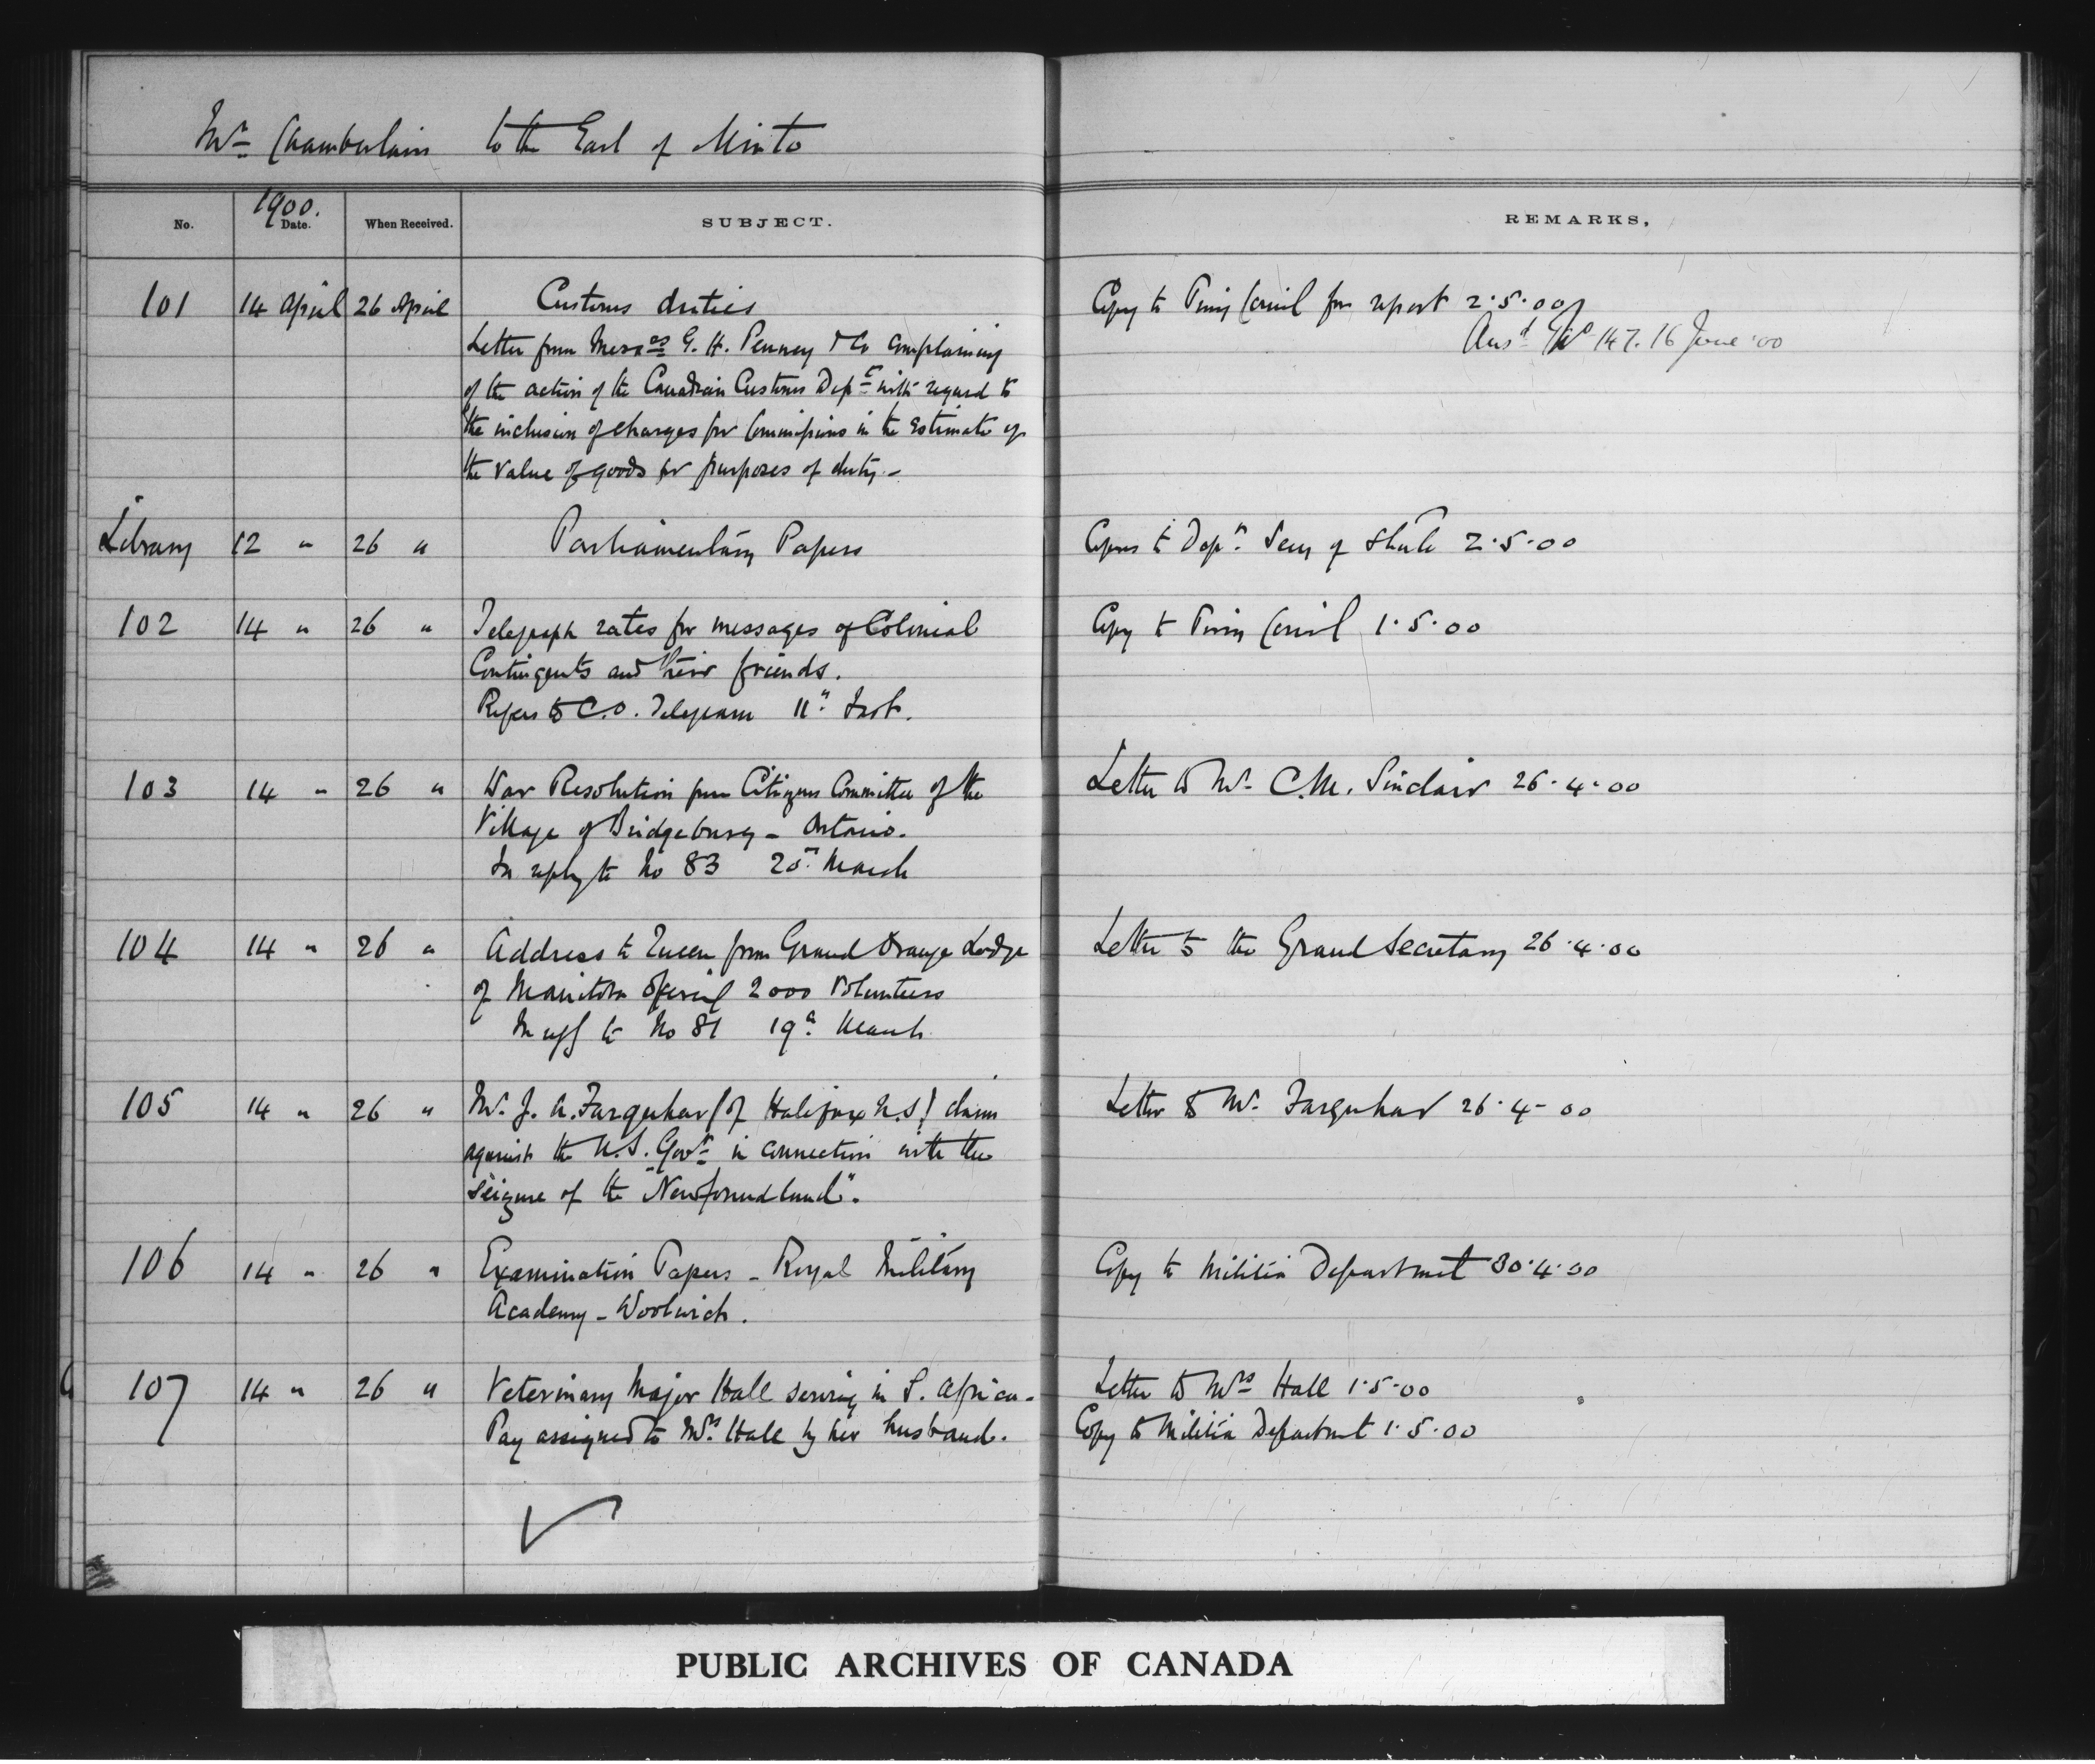 Mr Chamberlain to the Earl of Minto
No. 1900. Date. When Received. SUBJECT. REMARKS.
101 14 April 26 April Customs duties Copy to Privy Council for report 2.5.00
Ansd No 147. 16 June '00
Letter from Messrs G. H. Penney & Co complaining
of the action of the Canadian Customs Dept with regard to
the inclusion of charges for Commissions in the Estimate of
the value of goods for purposes of duty.-
Library 12 " 26 " Parliamentary Papers Copies to Dept. Secy of State 2.5.00
102 14 " 26 " Telegraph rates for messages of Colonial Copy to Privy Council 1.5.00
Contingents and their friends.
Refers to C.O. Telegram 11th Inst.
103 14 " 26 " War Resolution from Citizens Committee of the Letter to Mr C.M. Sinclair 26.4.00
Village of Bridgeburg - Ontario.
In reply to No 83 20th March
104 14 " 26 " Address to Queen from Grand Orange Lodge Letter to the Grand Secretary 26.4.00
of Manitoba offering 2000 Volunteers
In reply to No 81 19th March
105 14 " 26 " Mr. J. A. Farquhar (of Halifax N.S) claim Letter to Mr. Farquhar 26.4-00
against the U.S. Govt in connection with the
seizure of the "Newfoundland".
106 14 " 26 " Examination Papers - Royal Military Copy to Militia Department 30.4.00
Academy - Woolwich.
107 14 " 26 " Veterinary Major Hall serving in S. Africa- Letter to Mrs Hall 1.5.00
Pay assigned to Mrs Hall by her husband. Copy to Militia Department 1.5.00
PUBLIC ARCHIVES OF CANADA